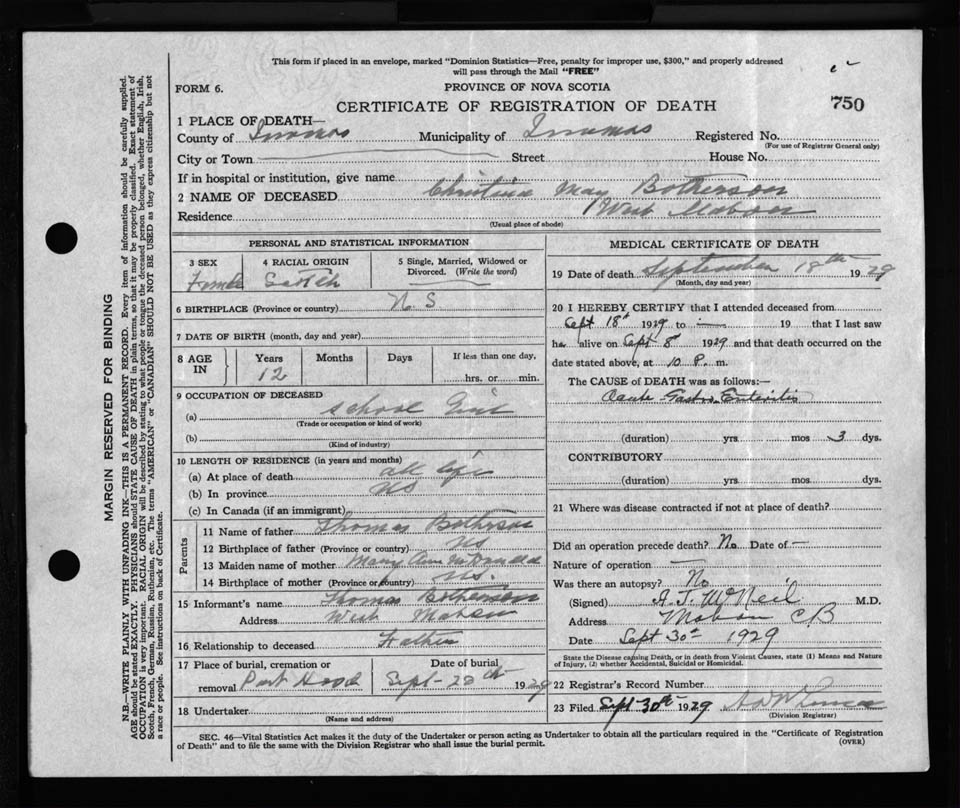 This form if placed in an envelope, marked "Dominion Statistics—Free, penalty for improper use, $300," and properly addressed
will pass through the Mail "FREE"
FORM 6.
PROVINCE OF NOVA SCOTIA
CERTIFICATE OF REGISTRATION OF DEATH
750
1 PLACE OF DEATH—
County of Inverness Municipality of Inverness Registered No.
(For use of Registrar General only)
City or Town Street House No.
If in hospital or institution, give name
2 NAME OF DECEASED Christina May Botherson
Residence West Mabou
(Usual place of abode)
PERSONAL AND STATISTICAL INFORMATION
3 SEX 4 RACIAL ORIGIN 5 Single, Married, Widowed or
Divorced. (Write the word)
Female Scotch
6 BIRTHPLACE (Province or country) N. S
7 DATE OF BIRTH (month, day and year)
8 AGE IN Years Months Days If less than one day,
12 hrs. or min.
9 OCCUPATION OF DECEASED
(a) School Girl
(Trade or occupation or kind of work)
(b)
(Kind of industry)
10 LENGTH OF RESIDENCE (in years and months)
(a) At place of death all life
(b) In province NS
(c) In Canada (if an immigrant)
Parents
11 Name of father Thomas Botherson
12 Birthplace of father (Province or country) NS
13 Maiden name of mother Mary Ann McDonald
14 Birthplace of mother (Province or country) NS.
15 Informant's name Thomas Botherson
Address West Mabou
16 Relationship to deceased Father
17 Place of burial, cremation or Date of burial
removal Port Hood Sept - 20th 1929
18 Undertaker
(Name and address)
MEDICAL CERTIFICATE OF DEATH
19 Date of death September 18th 1929
(Month, day and year)
20 I HEREBY CERTIFY that I attended deceased from
Sept 18th 1929 to — 19 that I last saw
her alive on Sept 8 1929 and that death occurred on the
date stated above, at 10 P. m.
The CAUSE of DEATH was as follows:—
Acute Gastro Enteritis
(duration) yrs. mos 3 dys.
CONTRIBUTORY
(duration) yrs. mos dys.
21 Where was disease contracted if not at place of death?
Did an operation precede death? No Date of —
Nature of operation —
Was there an autopsy? No
(Signed) A. J. McNeil M.D.
Address Mabou CB
Date Sept 30th 1929
State the Disease causing Death, or in death from Violent Causes, state (1) Means and Nature
of Injury, (2) whether Accidental, Suicidal or Homicidal.
22 Registrar's Record Number
23 Filed Sept 30th 1929
(Division Registrar)
SEC. 46—Vital Statistics Act makes it the duty of the Undertaker or person acting as Undertaker to obtain all the particulars required in the "Certificate of Registration
of Death" and to file the same with the Division Registrar who shall issue the burial permit.
(OVER)
MARGIN RESERVED FOR BINDING
N.B.—WRITE PLAINLY WITH UNFADING INK—THIS IS A PERMANENT RECORD. Every item of information should be carefully supplied.
AGE should be stated EXACTLY. PHYSICIANS should STATE CAUSE OF DEATH in plain terms, so that it may be properly classified. Exact statement of
OCCUPATION is very important. RACIAL ORIGIN will be described by stating to what people or tongue the deceased person belonged, whether English, Irish,
Scotch, French, German, Russian, Ruthenian, etc. The terms "AMERICAN" or "CANADIAN" SHOULD NOT BE USED as they express citizenship but not
a race or people. See instructions on back of Certificate.